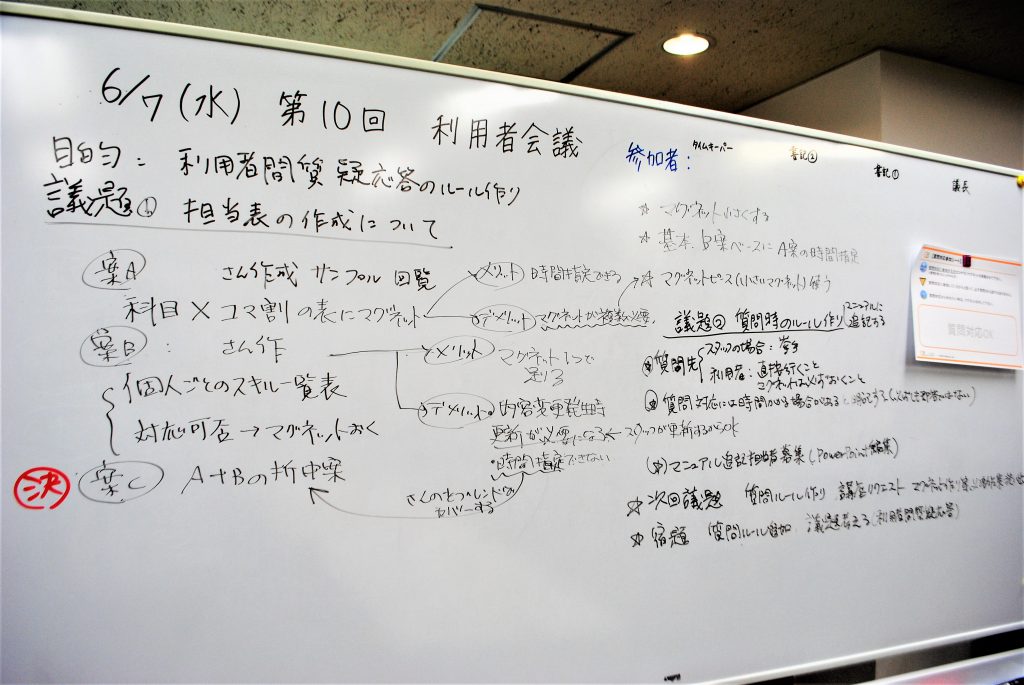 6/7(水) 第10回 利用者会議
目的: 利用者間質疑応答のルール作り
議題① 担当表の作成について
案A さん作成 サンプル回覧
科目×コマ割の表にマグネット
メリット 時間指定できる
デメリット マグネットが複数必要
マグネットピース(小さいマグネット)使う
案B: さん作
個人ごとのスキル一覧表
対応可否→マグネットおく
メリット マグネット1つで
足りる
デメリット 内容変更発生時
更新が必要になる← スタッフが更新するからOK
・時間指定できない
決 案C A+Bの折中案
カバーする
参加者:
タイムキーパー
書記②
書記①
議長
☆ マグネット小さくする
☆ 基本、B案ベースにA案の時間指定
議題② 質問時のルール作り
マニュアルに
追記する
質問先
スタッフの場合:挙手
利用者:直接行くこと
マグネットは必ずおくこと
質問対応には時間がかる場合がある
マニュアル追記担当者募集(PowerPoint編集)
☆ 次回議題 質問ルール作り 講座リクエスト
☆ 宿題 質問ルール追加 議題考える(利用者間質疑応答)
質問対応OK